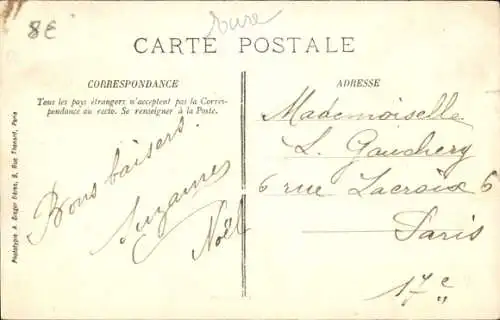 8€
Eure
CARTE POSTALE
CORRESPONDANCE
Tous les pays étrangers n'acceptent pas la Corres-
pondance au recto. Se renseigner à la Poste.
Bons baisers.
Suzanne
Noël
ADRESSE
Mademoiselle
L. Gauchery
6 rue Lacroix 6
Paris
17e
Phototypie A. Breger frères, 9, Rue Thénard, Paris